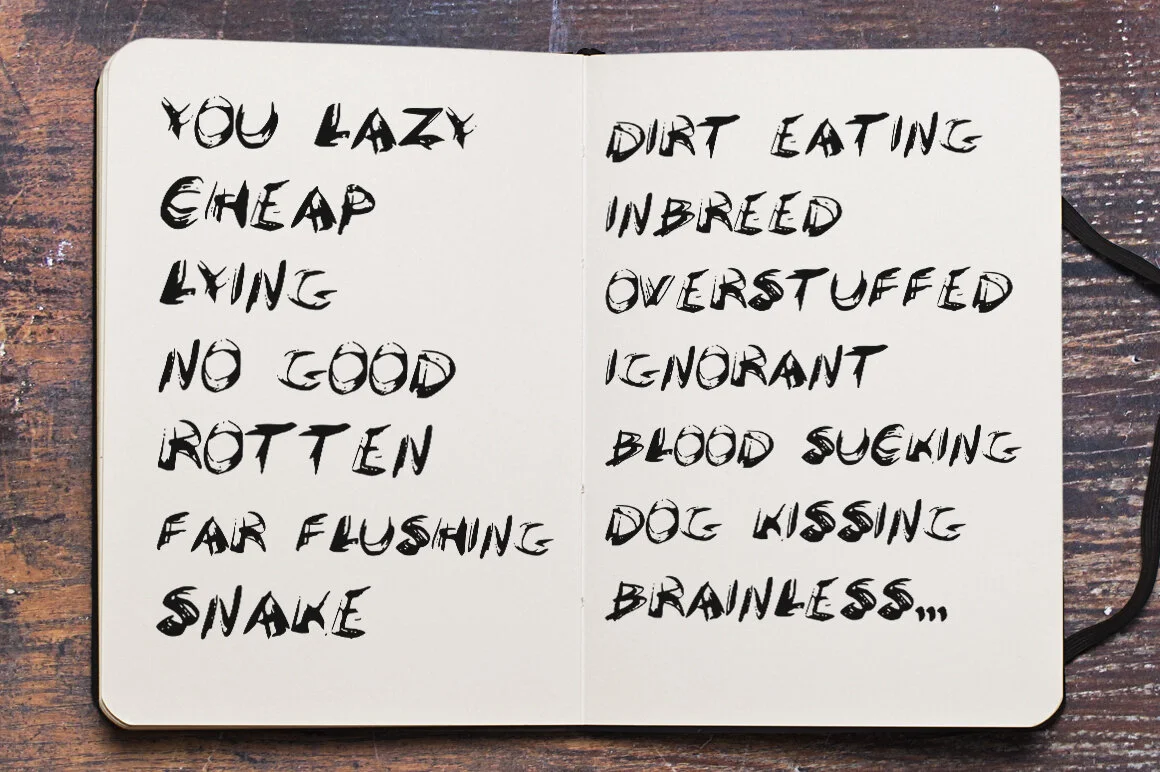 YOU LAZY
CHEAP
LYING
NO GOOD
ROTTEN
FAR FLUSHING
SNAKE
DIRT EATING
INBREED
OVERSTUFFED
IGNORANT
BLOOD SUCKING
DOG KISSING
BRAINLESS...